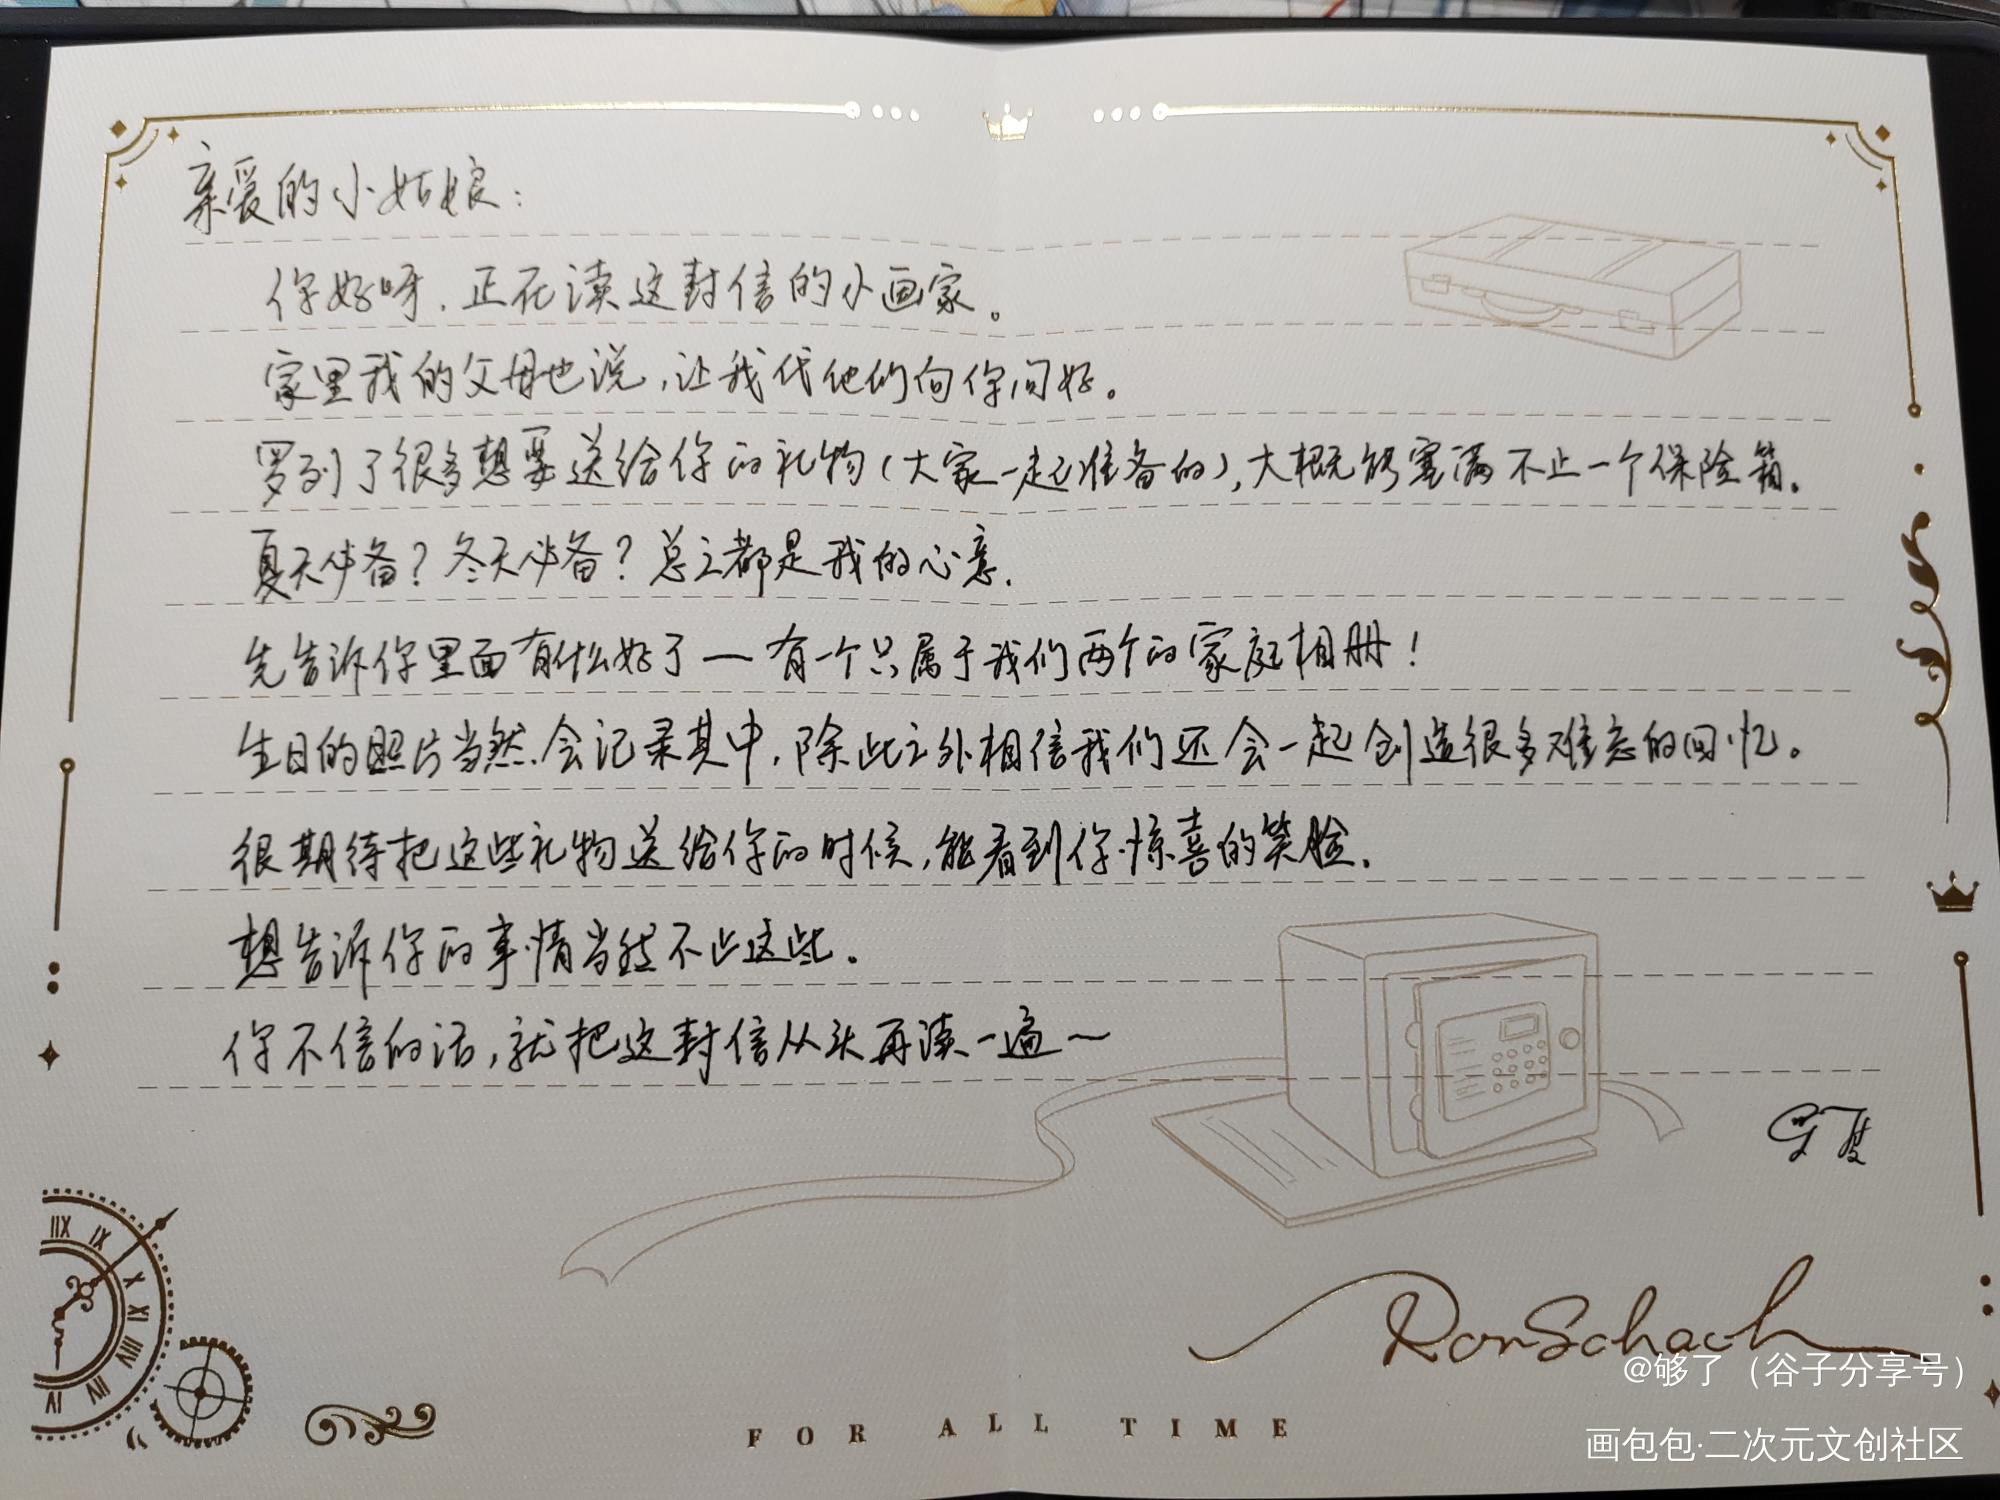 亲爱的小姑娘：
你好呀，正在读这封信的小画家。
家里我的父母也说，让我代他们向你问好。
罗列了很多想要送给你的礼物（大家一起准备的），大概能塞满不止一个保险箱。
夏天必备？冬天必备？总之都是我的心意。
先告诉你里面有什么好了——有一个只属于我们两个的家庭相册！
生日的照片当然会记录其中，除此之外相信我们还会一起创造很多难忘的回忆。
很期待把这些礼物送给你的时候，能看到你惊喜的笑脸。
想告诉你的事情当然不止这些。
你不信的话，就把这封信从头再读一遍～
罗夏
RorSchach
FOR ALL TIME
@够了（谷子分享号）
画包包·二次元文创社区